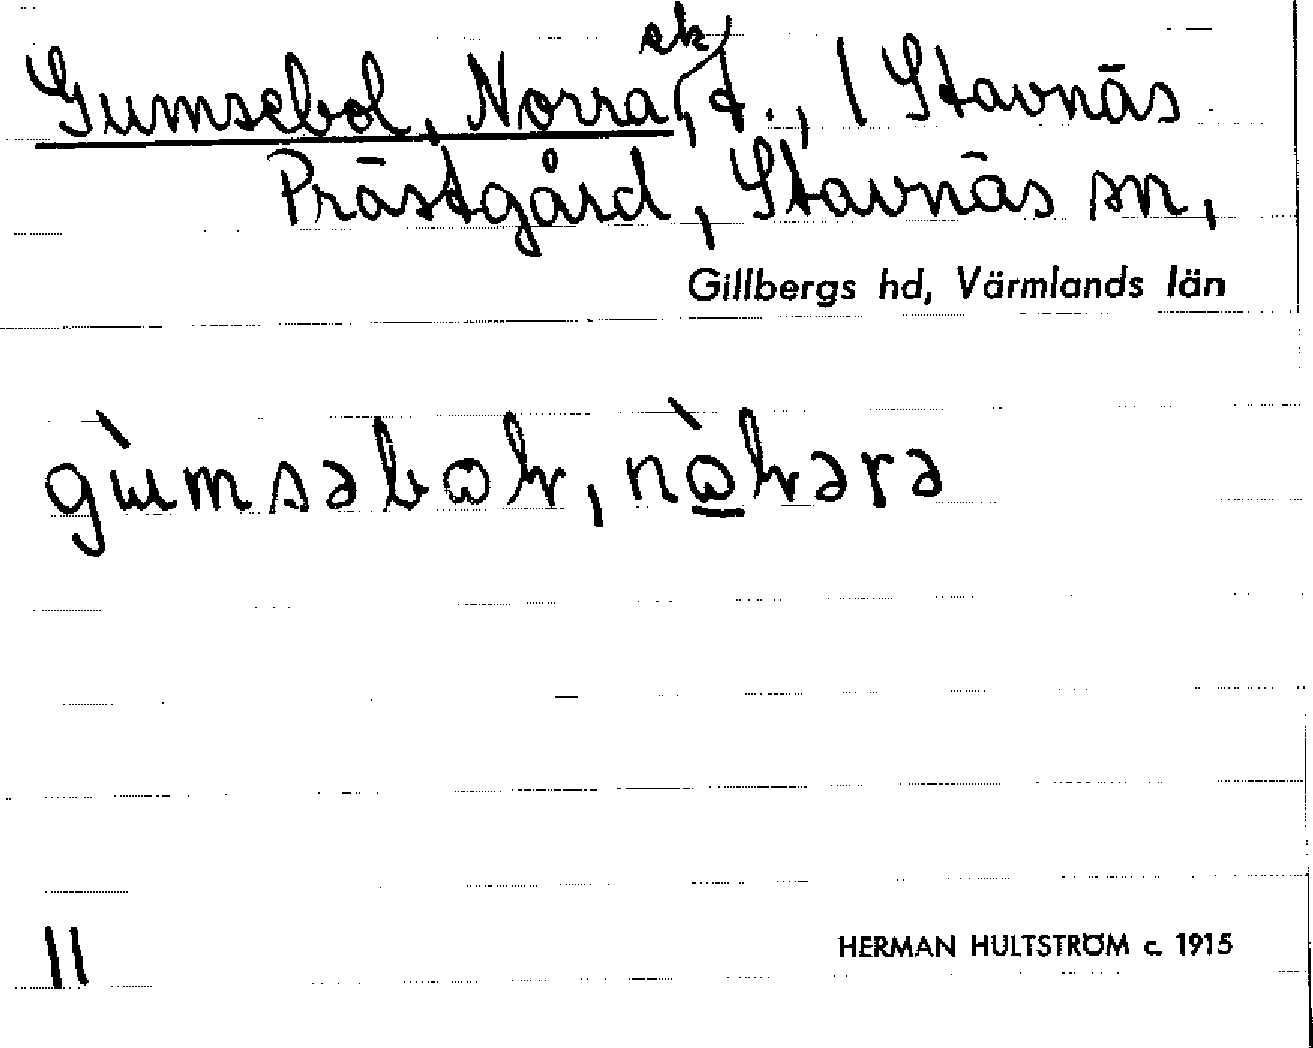 Gumsebol, Norra, sk t., / Stavnäs
Prästgård, Stavnäs sn,
Gillbergs hd, Värmlands län
11
HERMAN HULTSTRÖM c. 1915